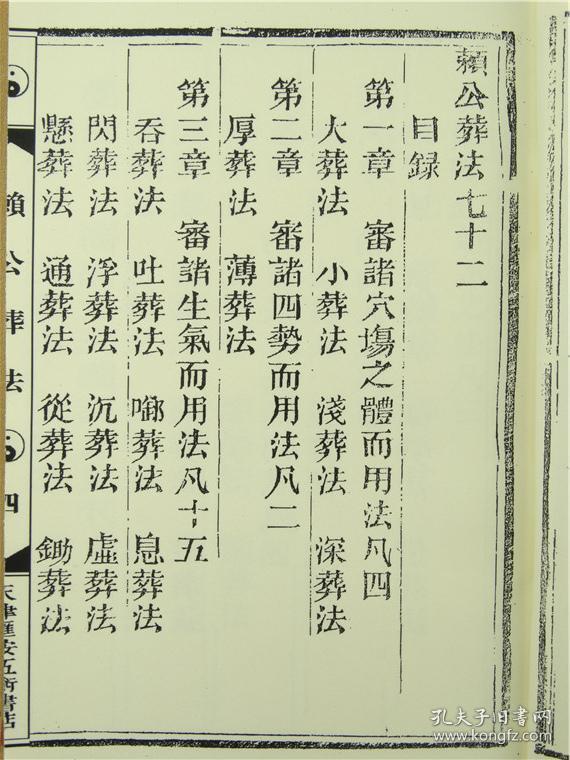 賴公葬法七十二
目録
第一章　審諸穴塲之體而用法凡四
大葬法　小葬法　淺葬法　深葬法
第二章　審諸四勢而用法凡二
厚葬法　薄葬法
第三章　審諸生氣而用法凡十五
吞葬法　吐葬法　啣葬法　息葬法
閃葬法　浮葬法　沉葬法　虛葬法
懸葬法　通葬法　從葬法　鋤葬法
賴公葬法　四
孔夫子旧书网
www.kongfz.com